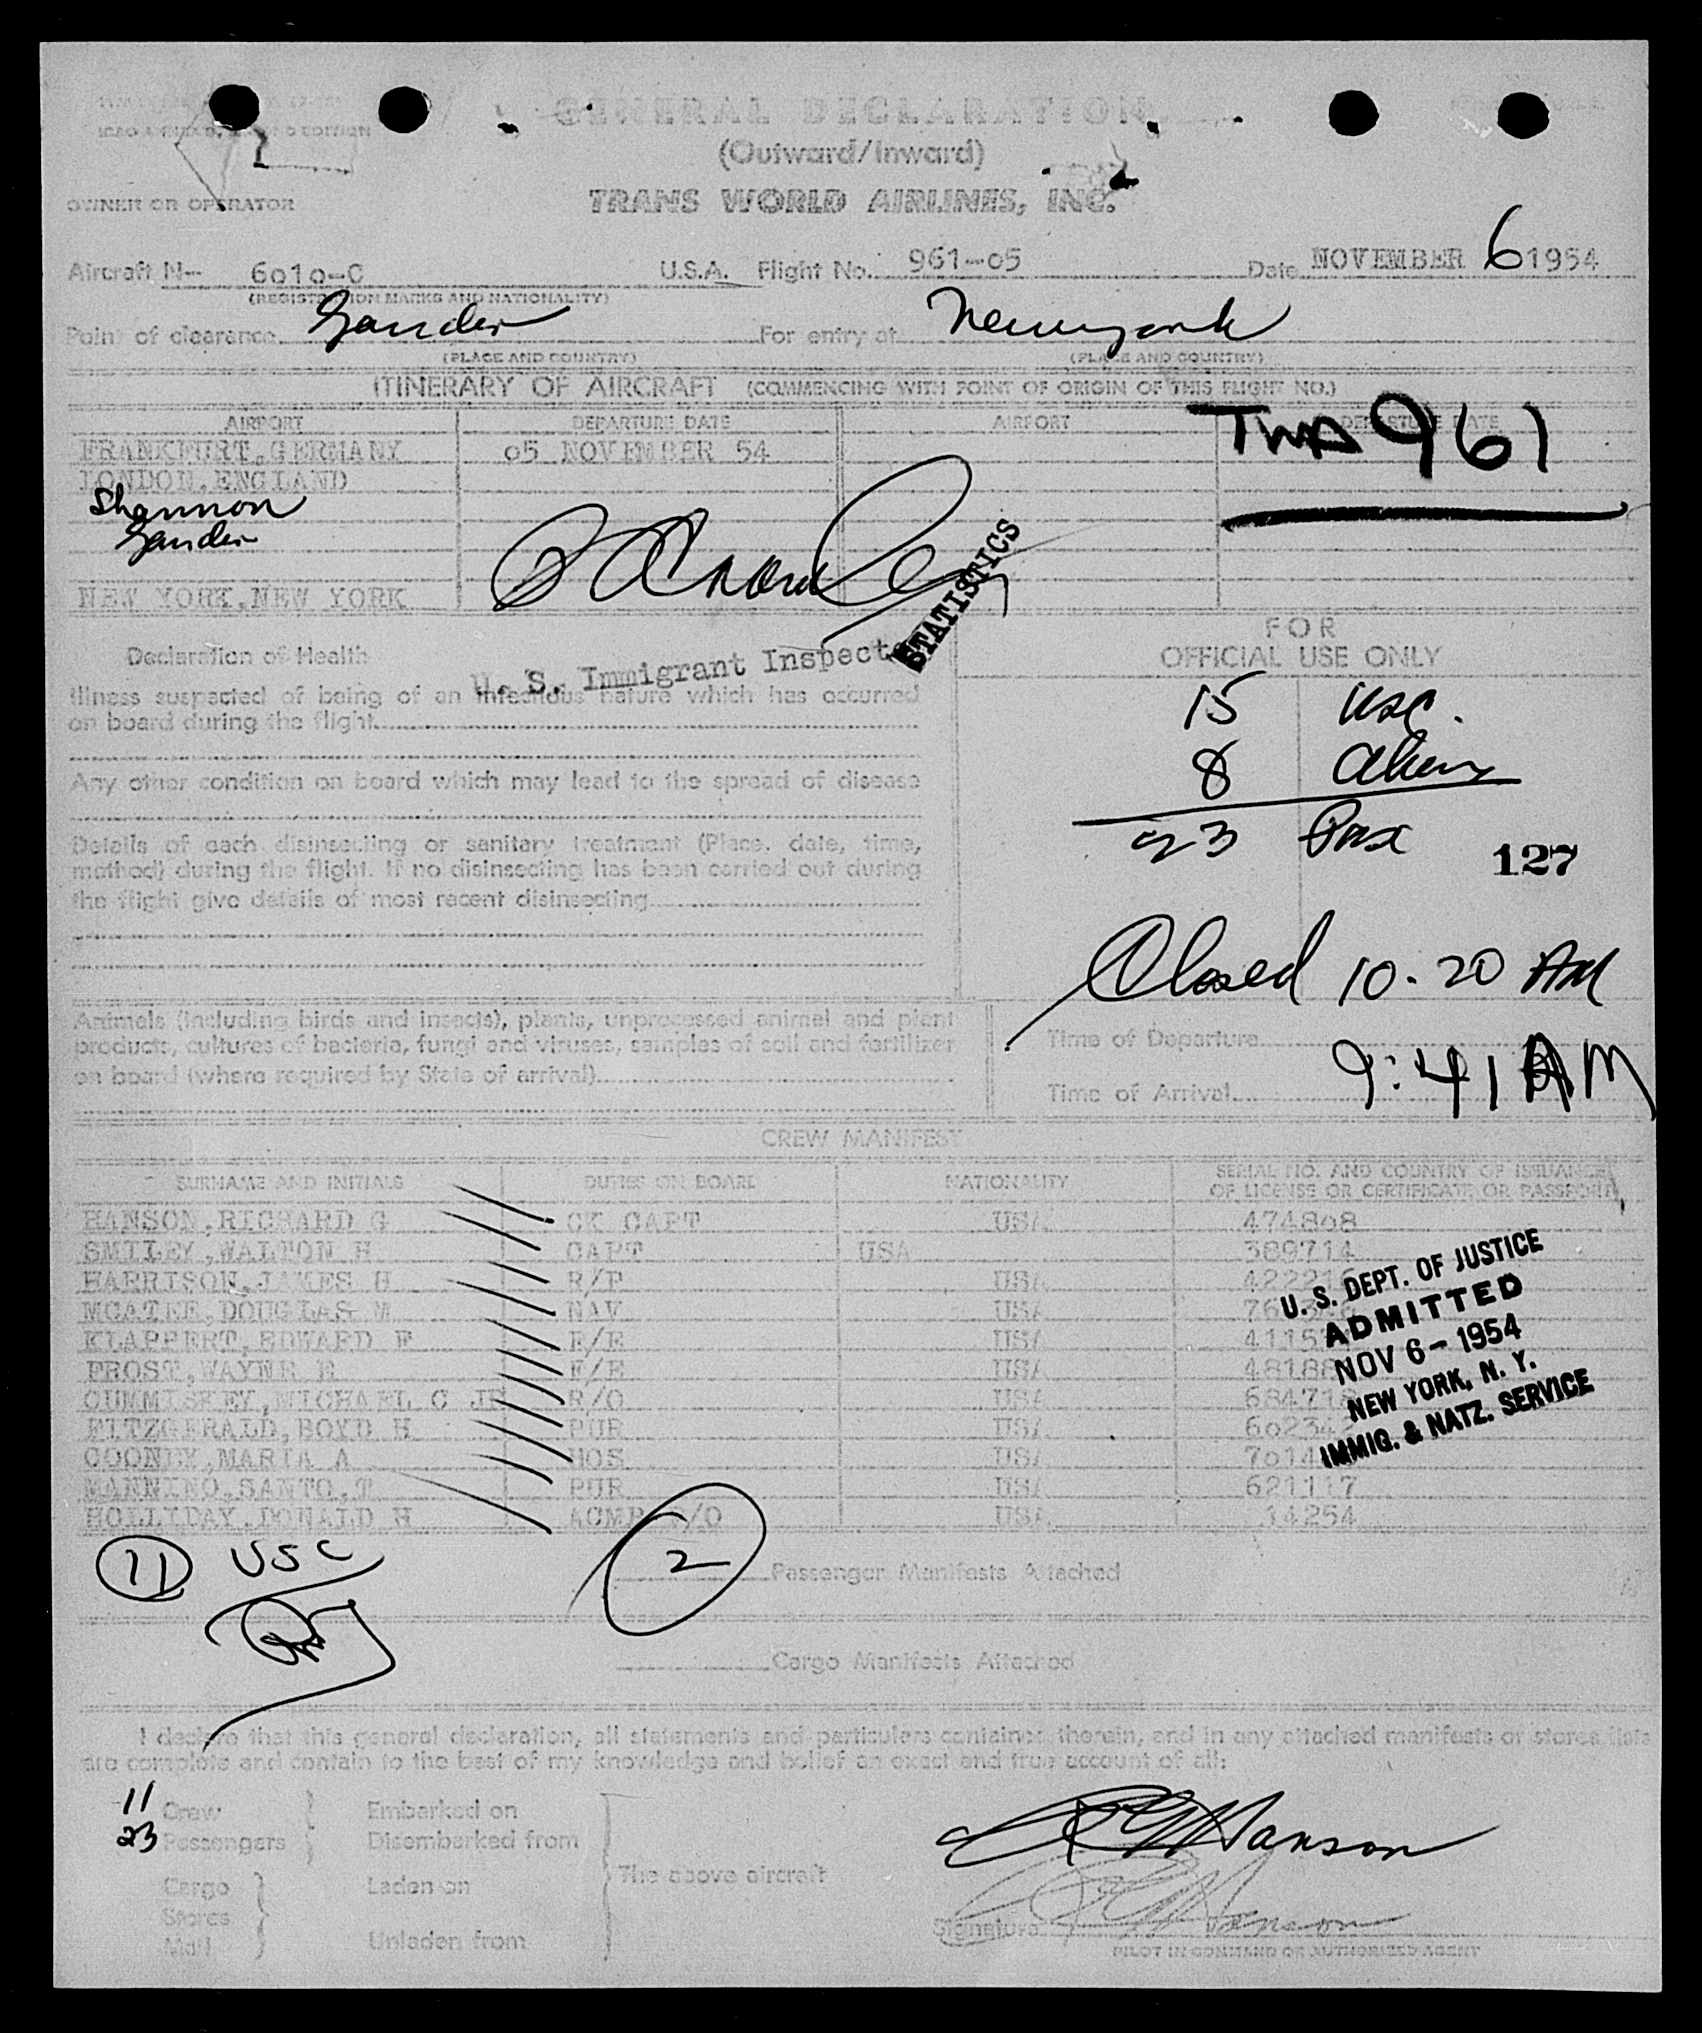 GENERAL DECLARATION
(Outward/Inward)
TRANS WORLD AIRLINES, INC.
OWNER OR OPERATOR
Aircraft N- 6010-C U.S.A. Flight No. 961-05 Date NOVEMBER 6 1954
(REGISTRATION MARKS AND NATIONALITY)
Point of clearance Gander For entry at Newyork
(PLACE AND COUNTRY) (PLACE AND COUNTRY)
ITINERARY OF AIRCRAFT (COMMENCING WITH POINT OF ORIGIN OF THIS FLIGHT NO.)
AIRPORT DEPARTURE DATE AIRPORT DEPARTURE DATE
TWA 961
FRANKFURT, GERMANY 05 NOVEMBER 54
LONDON, ENGLAND
Shannon
Gander
NEW YORK, NEW YORK
STATISTICS
U. S. Immigrant Inspector
Declaration of Health
Illness suspected of being of an infectious nature which has occurred
on board during the flight
Any other condition on board which may lead to the spread of disease
Details of each disinsecting or sanitary treatment (Place, date, time,
method) during the flight. If no disinsecting has been carried out during
the flight give details of most recent disinsecting
FOR
OFFICIAL USE ONLY
15 usc.
8 Aliens
23 Pax
127
Closed 10-20 AM
Animals (including birds and insects), plants, unprocessed animal and plant
products, cultures of bacteria, fungi and viruses, samples of soil and fertilizer
on board (where required by State of arrival)
Time of Departure
Time of Arrival 9:41 AM
CREW MANIFEST
SURNAME AND INITIALS DUTIES ON BOARD NATIONALITY SERIAL NO. AND COUNTRY OF ISSUANCE
OF LICENSE OR CERTIFICATE OR PASSPORT
HANSON, RICHARD G CK CAPT USA 474808
SMILEY, WALTON H CAPT USA 389714
HARRISON, JAMES H R/P USA
MCATEE, DOUGLAS M NAV USA
KLAPPERT, EDWARD F F/E USA
FROST, WAYNE R F/E USA
CUMMISKEY, MICHAEL C JR R/O USA
FITZGERALD, BOYD H PUR USA
COONEY, MARIA A HOS USA
MANNINO, SANTO, T PUR USA 621117
HOLLIDAY, DONALD H ACMP R/O USA 14254
U. S. DEPT. OF JUSTICE
ADMITTED
NOV 6 - 1954
NEW YORK, N. Y.
IMMIG. & NATZ. SERVICE
11 USC
2 Passenger Manifests Attached
Cargo Manifests Attached
I declare that this general declaration, all statements and particulars contained therein, and in any attached manifests or stores lists
are complete and contain to the best of my knowledge and belief an exact and true account of all:
11 Crew Embarked on
23 Passengers Disembarked from
The above aircraft
Cargo Laden on
Stores
Mail Unladen from
R G Hanson
Signature R G Hanson
PILOT IN COMMAND OR AUTHORIZED AGENT